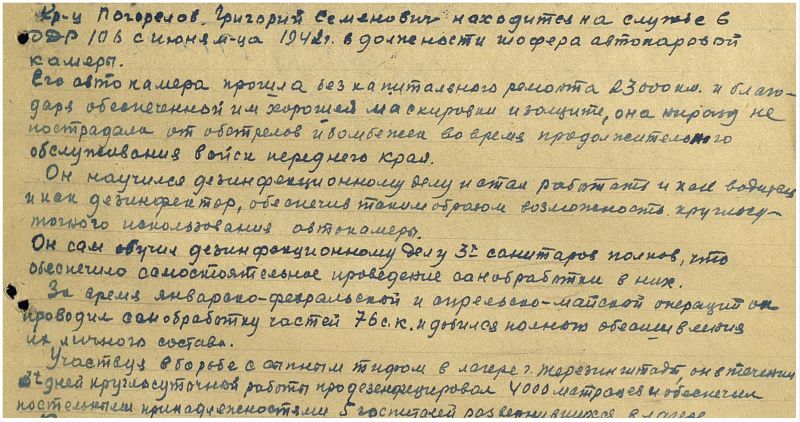 Кр-ц Погорелов Григорий Семенович находится на службе в
ОДР 106 с июня м-ца 1942г. в должности шофера автопаровой
камеры.
Его автокамера прошла без капитального ремонта 23000 км. и благо-
даря обеспеченной им хорошей маскировки и защите, она ни разу не
пострадала от обстрелов и бомбежек во время продолжительного
обслуживания войск переднего края.
Он научился дезинфекционному делу и стал работать и как водитель
и как дезинфектор, обеспечив таким образом возможность круглосу-
точного использования автокамеры.
Он сам обучил дезинфекционному делу 3х санитаров полков, что
обеспечило самостоятельное проведение санобработки в них.
За время январско-февральской и апрельско-майской операций он
проводил санобработку частей 76 с.к. и добился полного обезвшивления
их личного состава.
Участвуя в борьбе с сыпным тифом в лагере г. Терезинштадт, он в течении
3х дней круглосуточной работы продезенфецировал 4000 матрацев и обеспечил
постельными принадлежностями 5 госпиталей развернувшихся в лагере